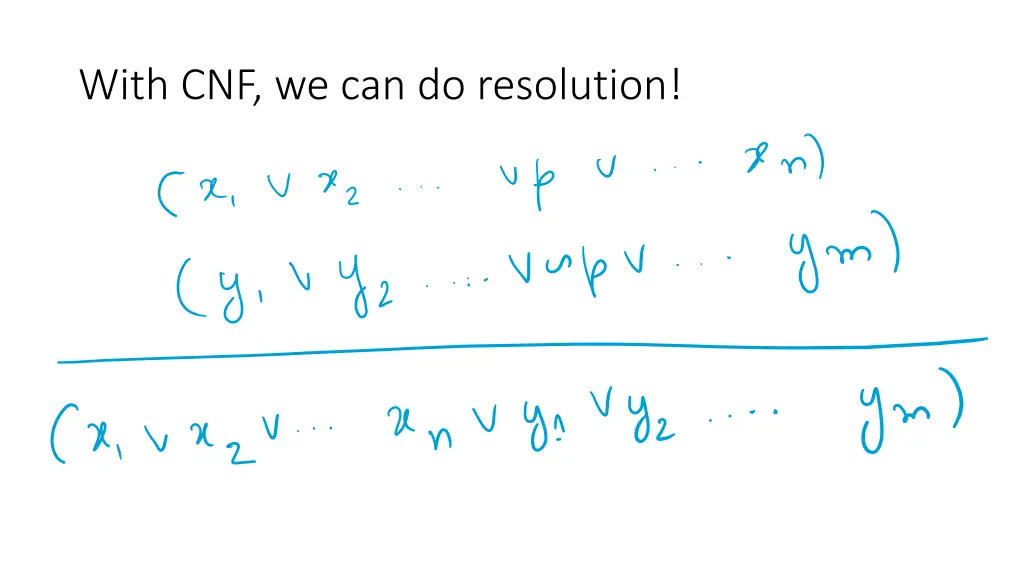 With CNF, we can do resolution!
(x₁ ∨ x₂ ... ∨ p ∨ ... xₙ)
(y₁ ∨ y₂ ..... ∨ ∽p ∨ ... yₘ)
(x₁ ∨ x₂ ∨ ... xₙ ∨ y₁ ∨ y₂ .... yₘ)